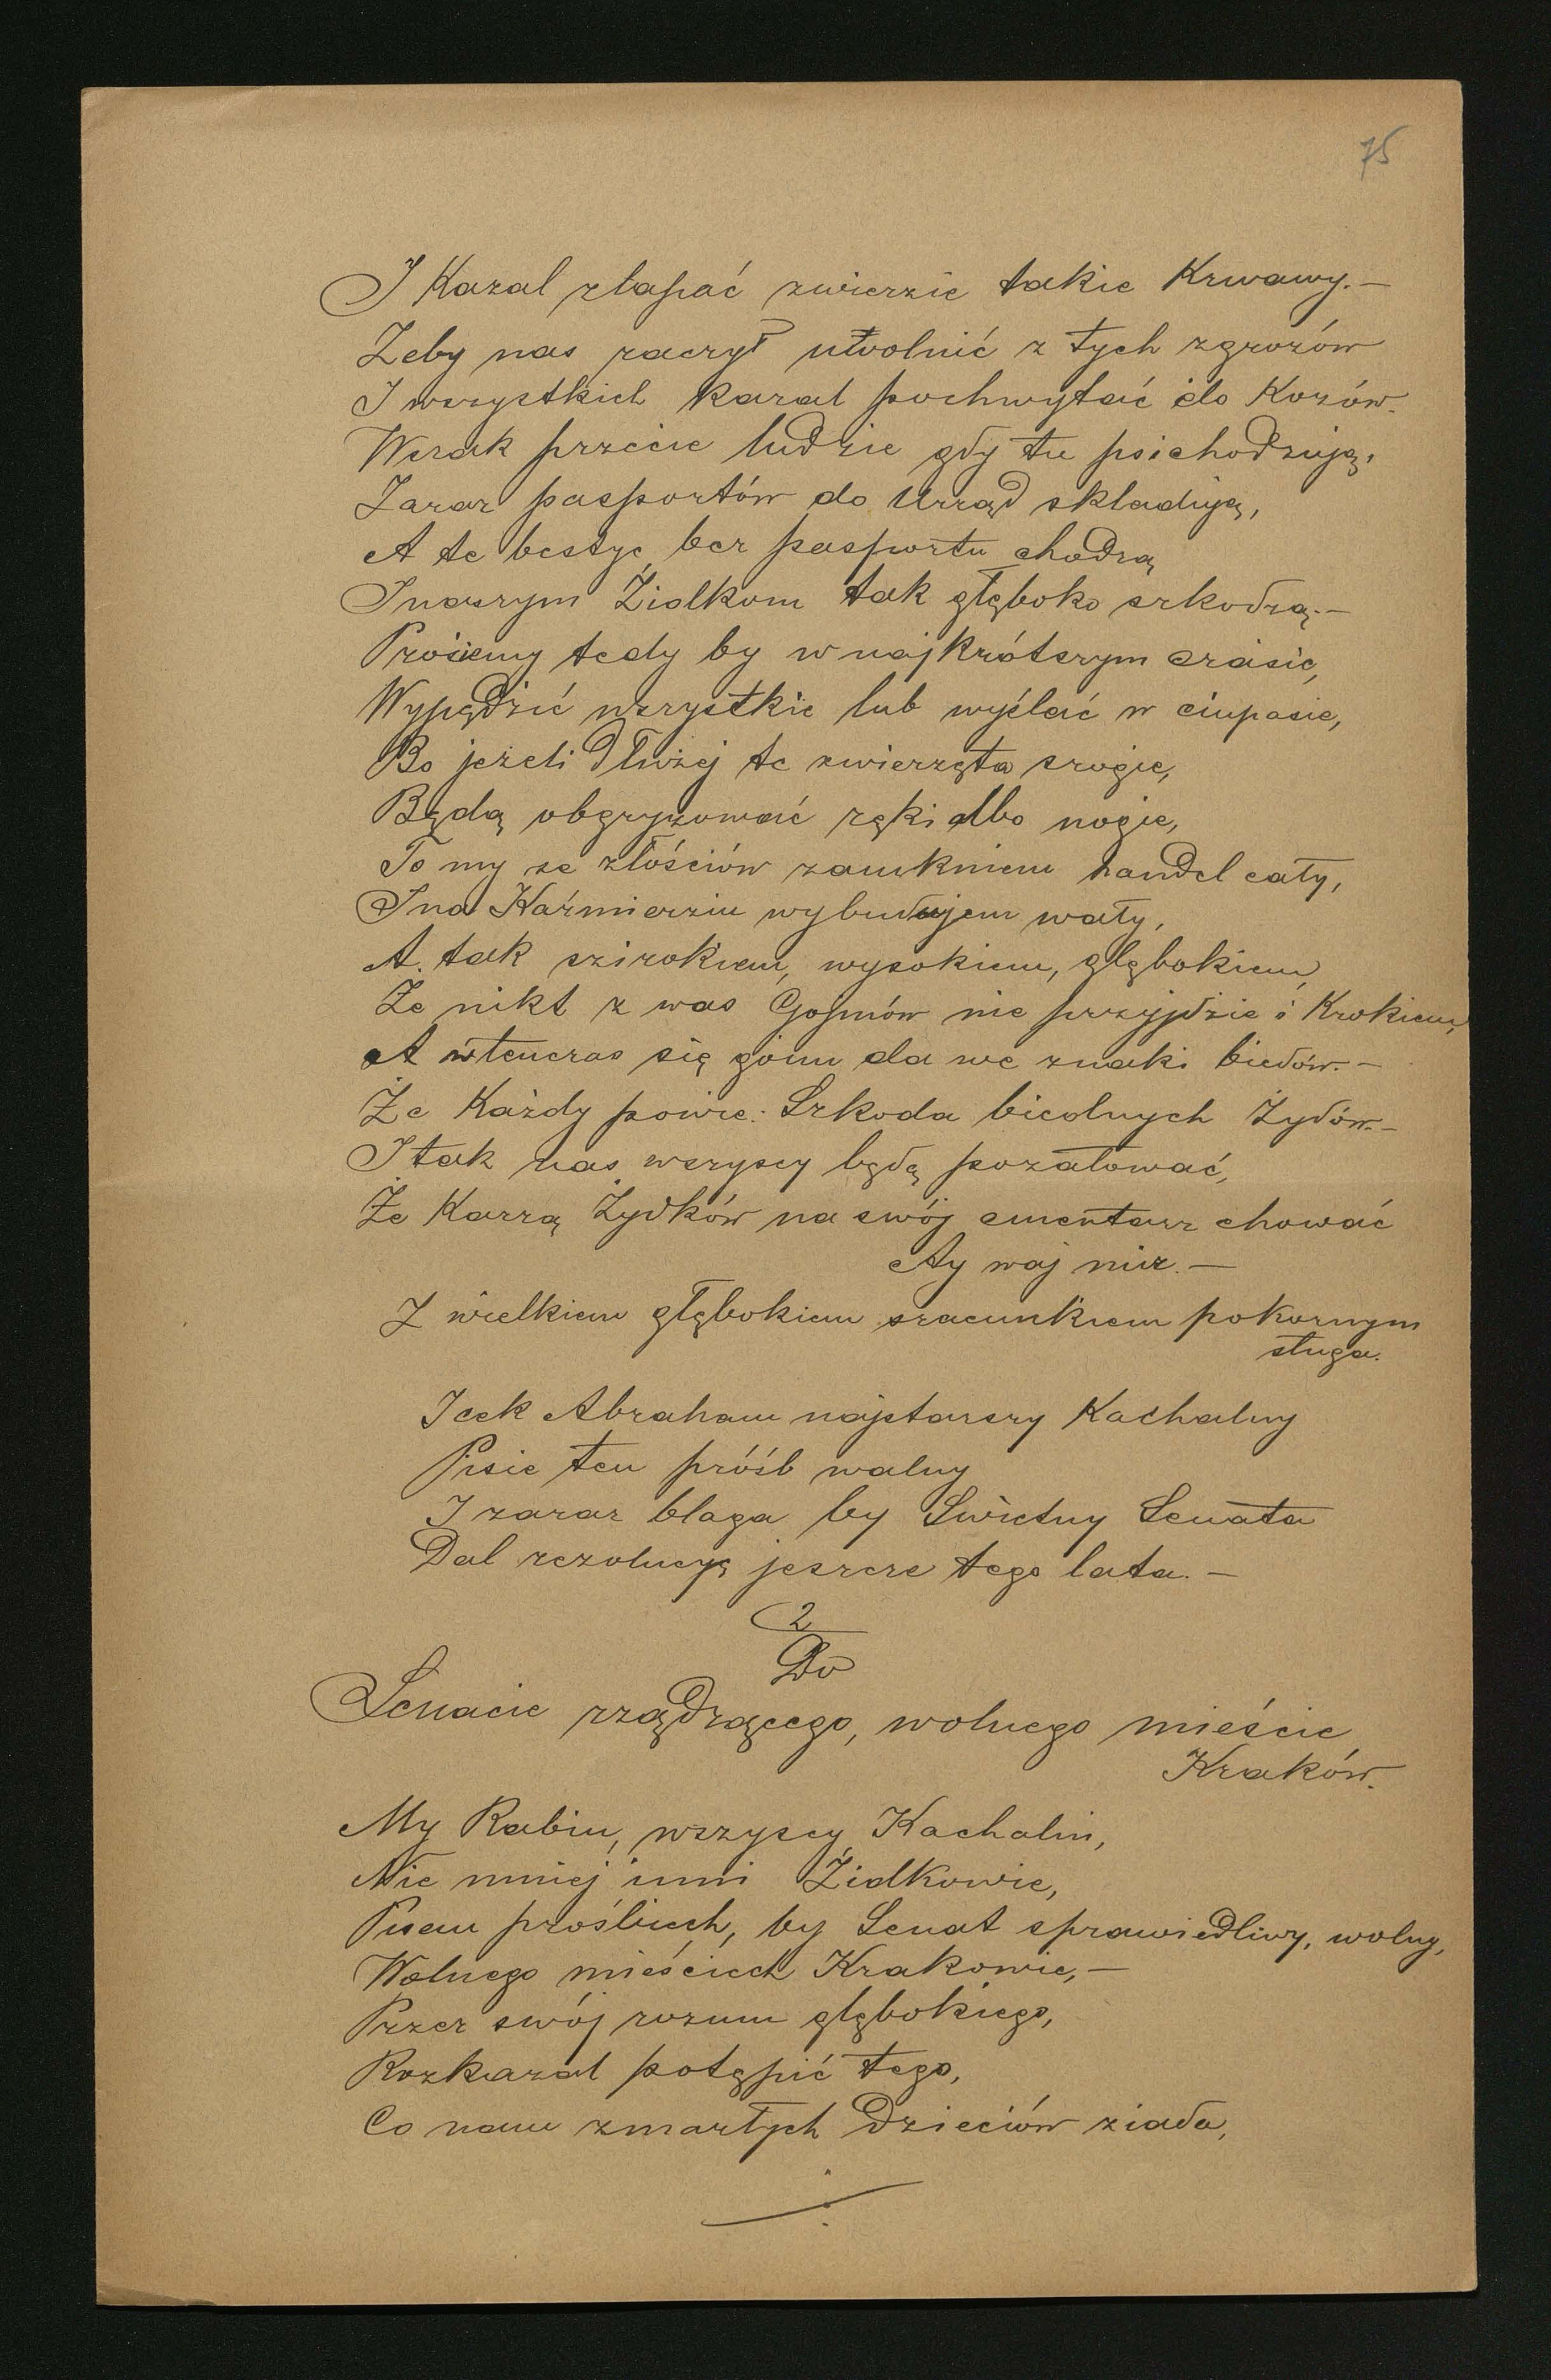 75
I Kazal złapać zwierzie takie Krwawy.—
Zeby nas raczył utwolnić z tych zgrozów
I wszystkich kazal pochwytać do Kozów.
Wszak przecie ludzie gdy tu psichodzują,
Zaraz pasportów do Urząd składują,
A te bestye bez pasportu chodzą
I naszym Židkom tak głęboko szkodzą.—
Prosiemy tedy by w najkrótszym czasie,
Wypędzić wszystkie lub wysłać w ciupasie,
Bo jezeli dłużej te zwierzęta srogie,
Będą obgryzować ręki albo nogie,
To my ze złościów zamkniem handel cały,
I na Kaźmierziu wybudujem wały,
A tak szirokiem, wysokiem, głębokiem,
Że nikt z was Gojmów nie przyjdzie i Krokiem,
A wtenczas się goim da we znaki biedów.—
Że Każdy powie: Szkoda biednych Żydów.—
I tak nas wszyscy będą pozałować,
Że Karzą Żydków na swój cmentarz chować
Ay waj mir.—
Z wielkiem głębokiem szacunkiem pokornym
sługa.
Icek Abraham najstarszy Kachalny
Pisie ten próśb walny
I zaraz błaga by Swietny Senata
Dal rezolucyę jeszcze tego lata.—
2
Do
Senacie rządzącego, wolnego mieście
Kraków.
My Rabin, wszyscy Kachalin,
Nie mniej inni Židkowie,
Pisem prośbiech, by Senat sprawiedliwy, wolny,
Wolnego mieściech Krakowie,—
Przez swój rozum głębokiego,
Rozkazał potępić tego,
Co nam zmarłych dzieciów ziada,